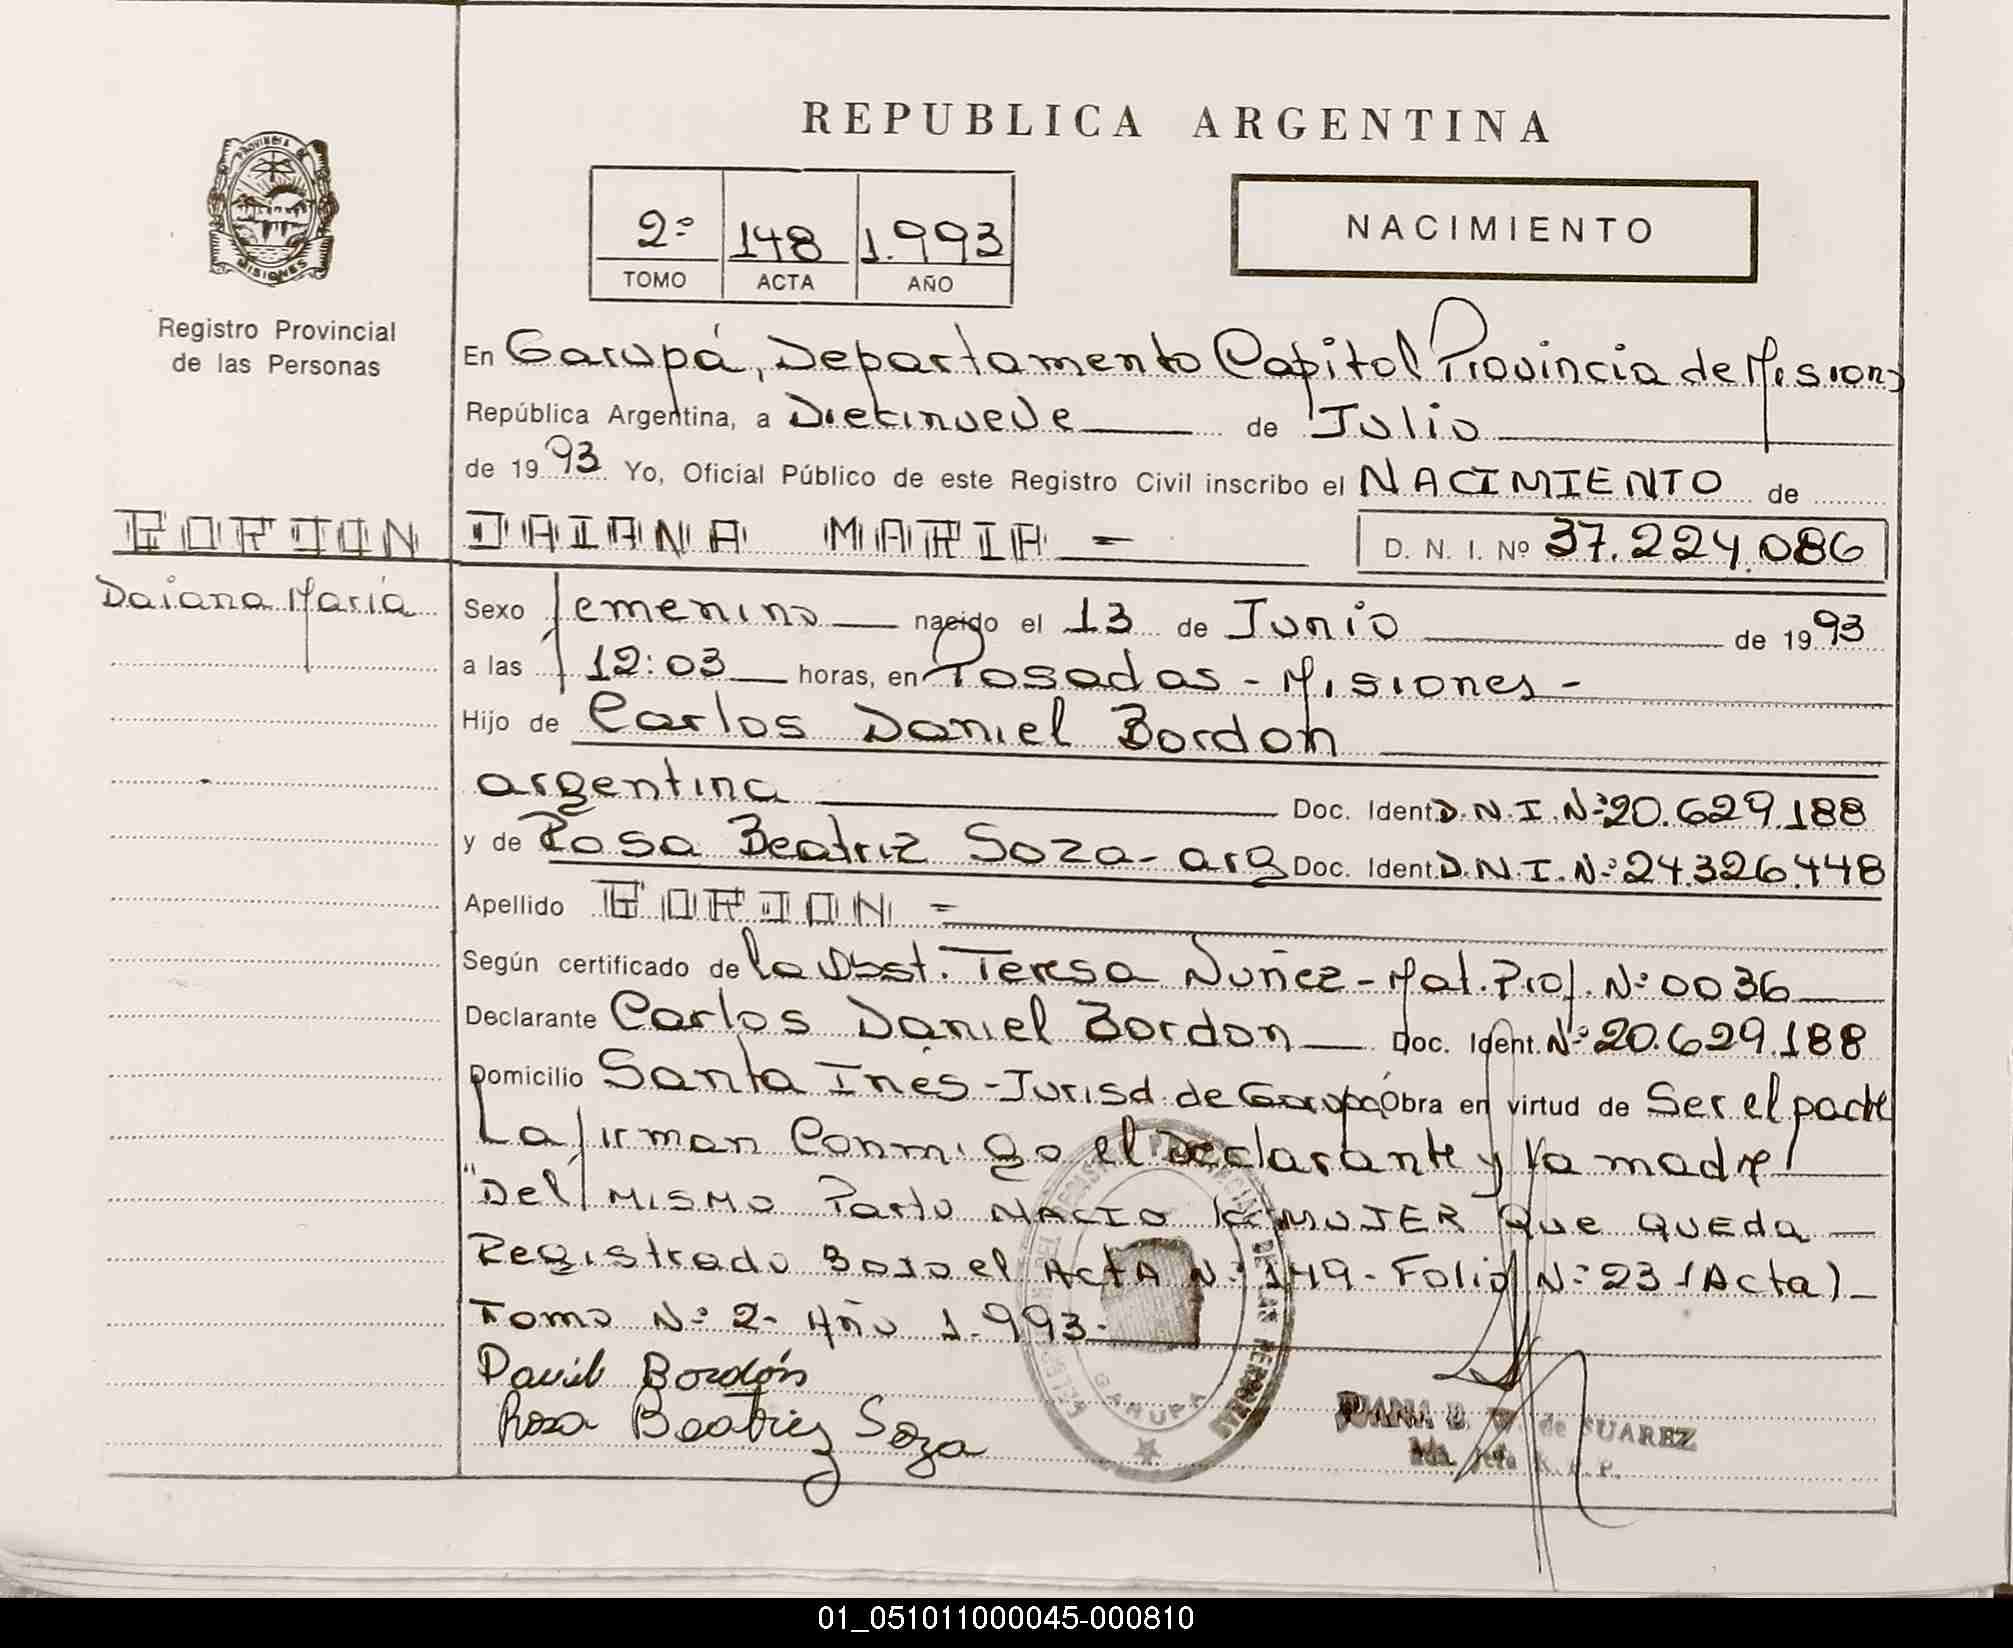 REPUBLICA ARGENTINA
PROVINCIA DE
MISIONES
Registro Provincial
de las Personas
2º 148 1.993
TOMO ACTA AÑO
NACIMIENTO
En Garupá, Departamento Capitol Provincia de Misiones
República Argentina, a Diecinueve de Julio
de 1993 Yo, Oficial Público de este Registro Civil inscribo el NACIMIENTO de
BORDON DAIANA MARIA =
D. N. I. Nº 37.224.086
Daiana María
Sexo femenino nacido el 13 de Junio de 1993
a las 12:03 horas, en Posadas - Misiones -
Hijo de Carlos Daniel Bordon
argentina Doc. Ident D.N.I.Nº 20.629.188
y de Rosa Beatriz Soza - arg Doc. Ident. D.N.I.Nº 24.326.448
Apellido BORDON =
Según certificado de la Obst. Teresa Nuñez - Mat. Prof. Nº 0036
Declarante Carlos Daniel Bordon Doc. Ident. Nº 20.629.188
Domicilio Santa Inés - Jurisd. de Garupá Obra en virtud de Ser el padre
La firman Conmigo el Declarante y la madre
"Del mismo Parto NACIO MUJER Que QUEDA
Registrado Bajo el ActA Nº 149 - Folio Nº 23 (Acta)
Tomo Nº 2 - Año 1.993 -
Bordón
Rosa Beatriz Soza
DE LAS PERSONAS
GARUPA
JUANA de SUAREZ
R. P.
01_051011000045-000810